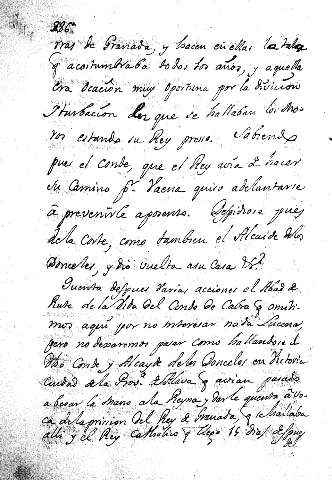 286
rras de Granada, y hacen en ellas la tala
q acostumbraba todos los años, y aquella
era ocacion muy oportuna por la divicion
y turbacion en que se hallaban los Mo-
ros estando su Rey preso. Sabiendo
pues el Conde, que el Rey avia de hacer
su Camino pr. Vaena quiso adelantarse
á prevenirle aposento. Despidiose pues
de la Corte, como tambien el Alcaide delos
Donceles, y dió vuelta asu Casa &ª.
Cuenta despues varias acciones el Abad de
Rute de la Vida del Conde de Cabra q omiti-
mos aqui por no interesar nada Lucena,
pero no dexaremos pasar como hallandose el
dho Conde y Alcayde delos Donceles en Victoria
Ciudad de la Prova. de Alava q avian pasado
abesar la mano ala Reyna y darle cuenta
ca dela prision del Rey de Granada, q se hallaba
alli y el Rey catholico q llegó 15 dias despues